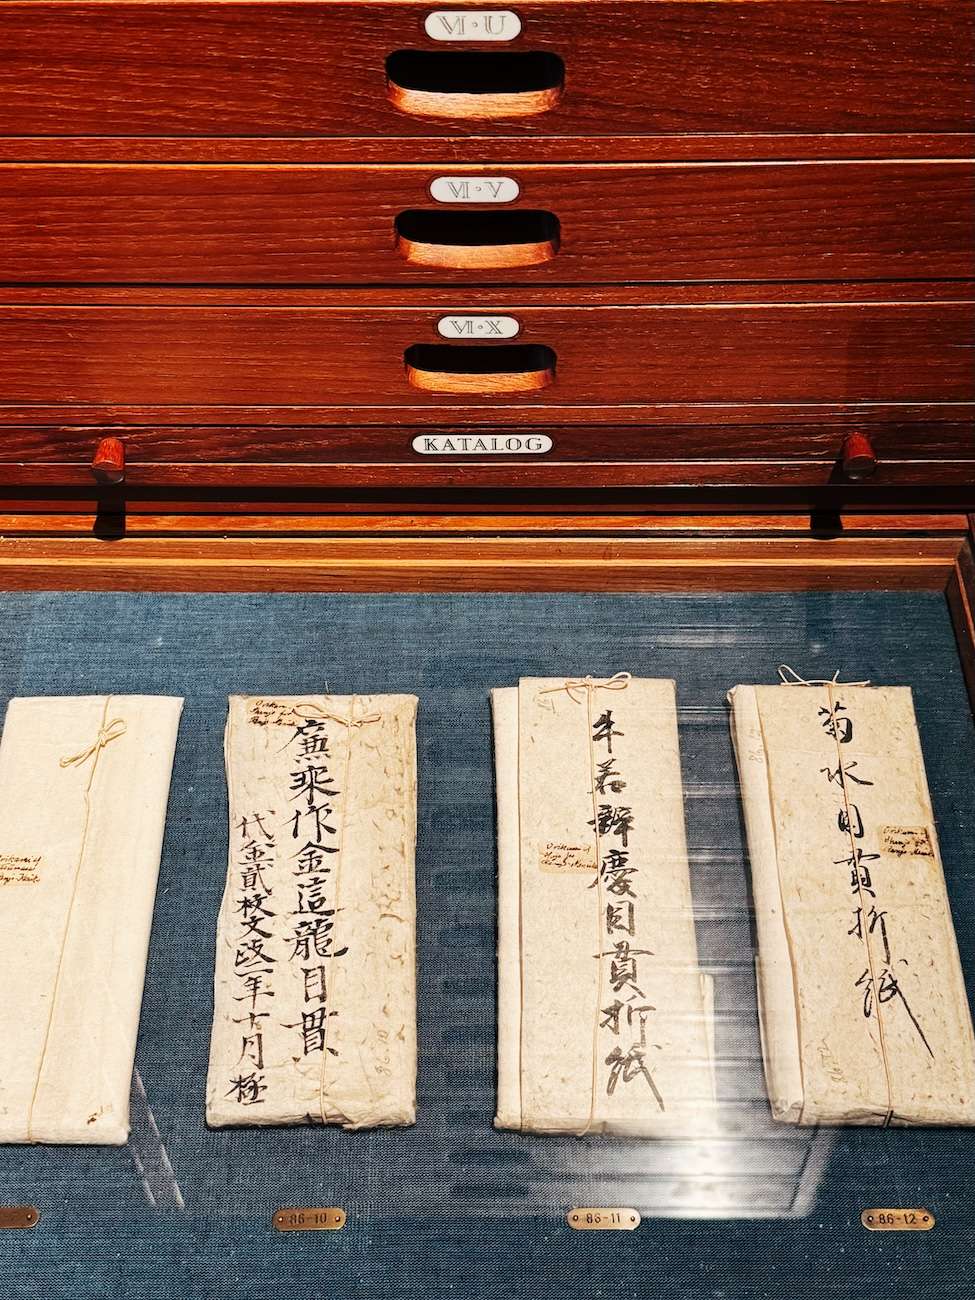 VI·U
VI·V
VI·X
KATALOG
廉乘作金這龍目貫
代金貳枚文政年十月極
牛若辨慶目貫折紙
菊水目貫折紙
Orikami of
86-10
86-11
86-12